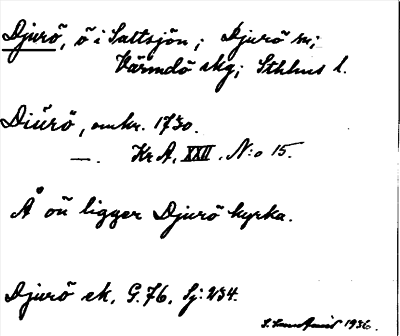 Djurö, ö i Saltsjön; Djurö sn;
Värmdö skg; Sthlms l.
Diürö, omkr. 1730.
—. Kr A, XXII. N:o 15.
Å ön ligger Djurö kyrka.
Djurö sk. G.76. Sj: 234.
1936.